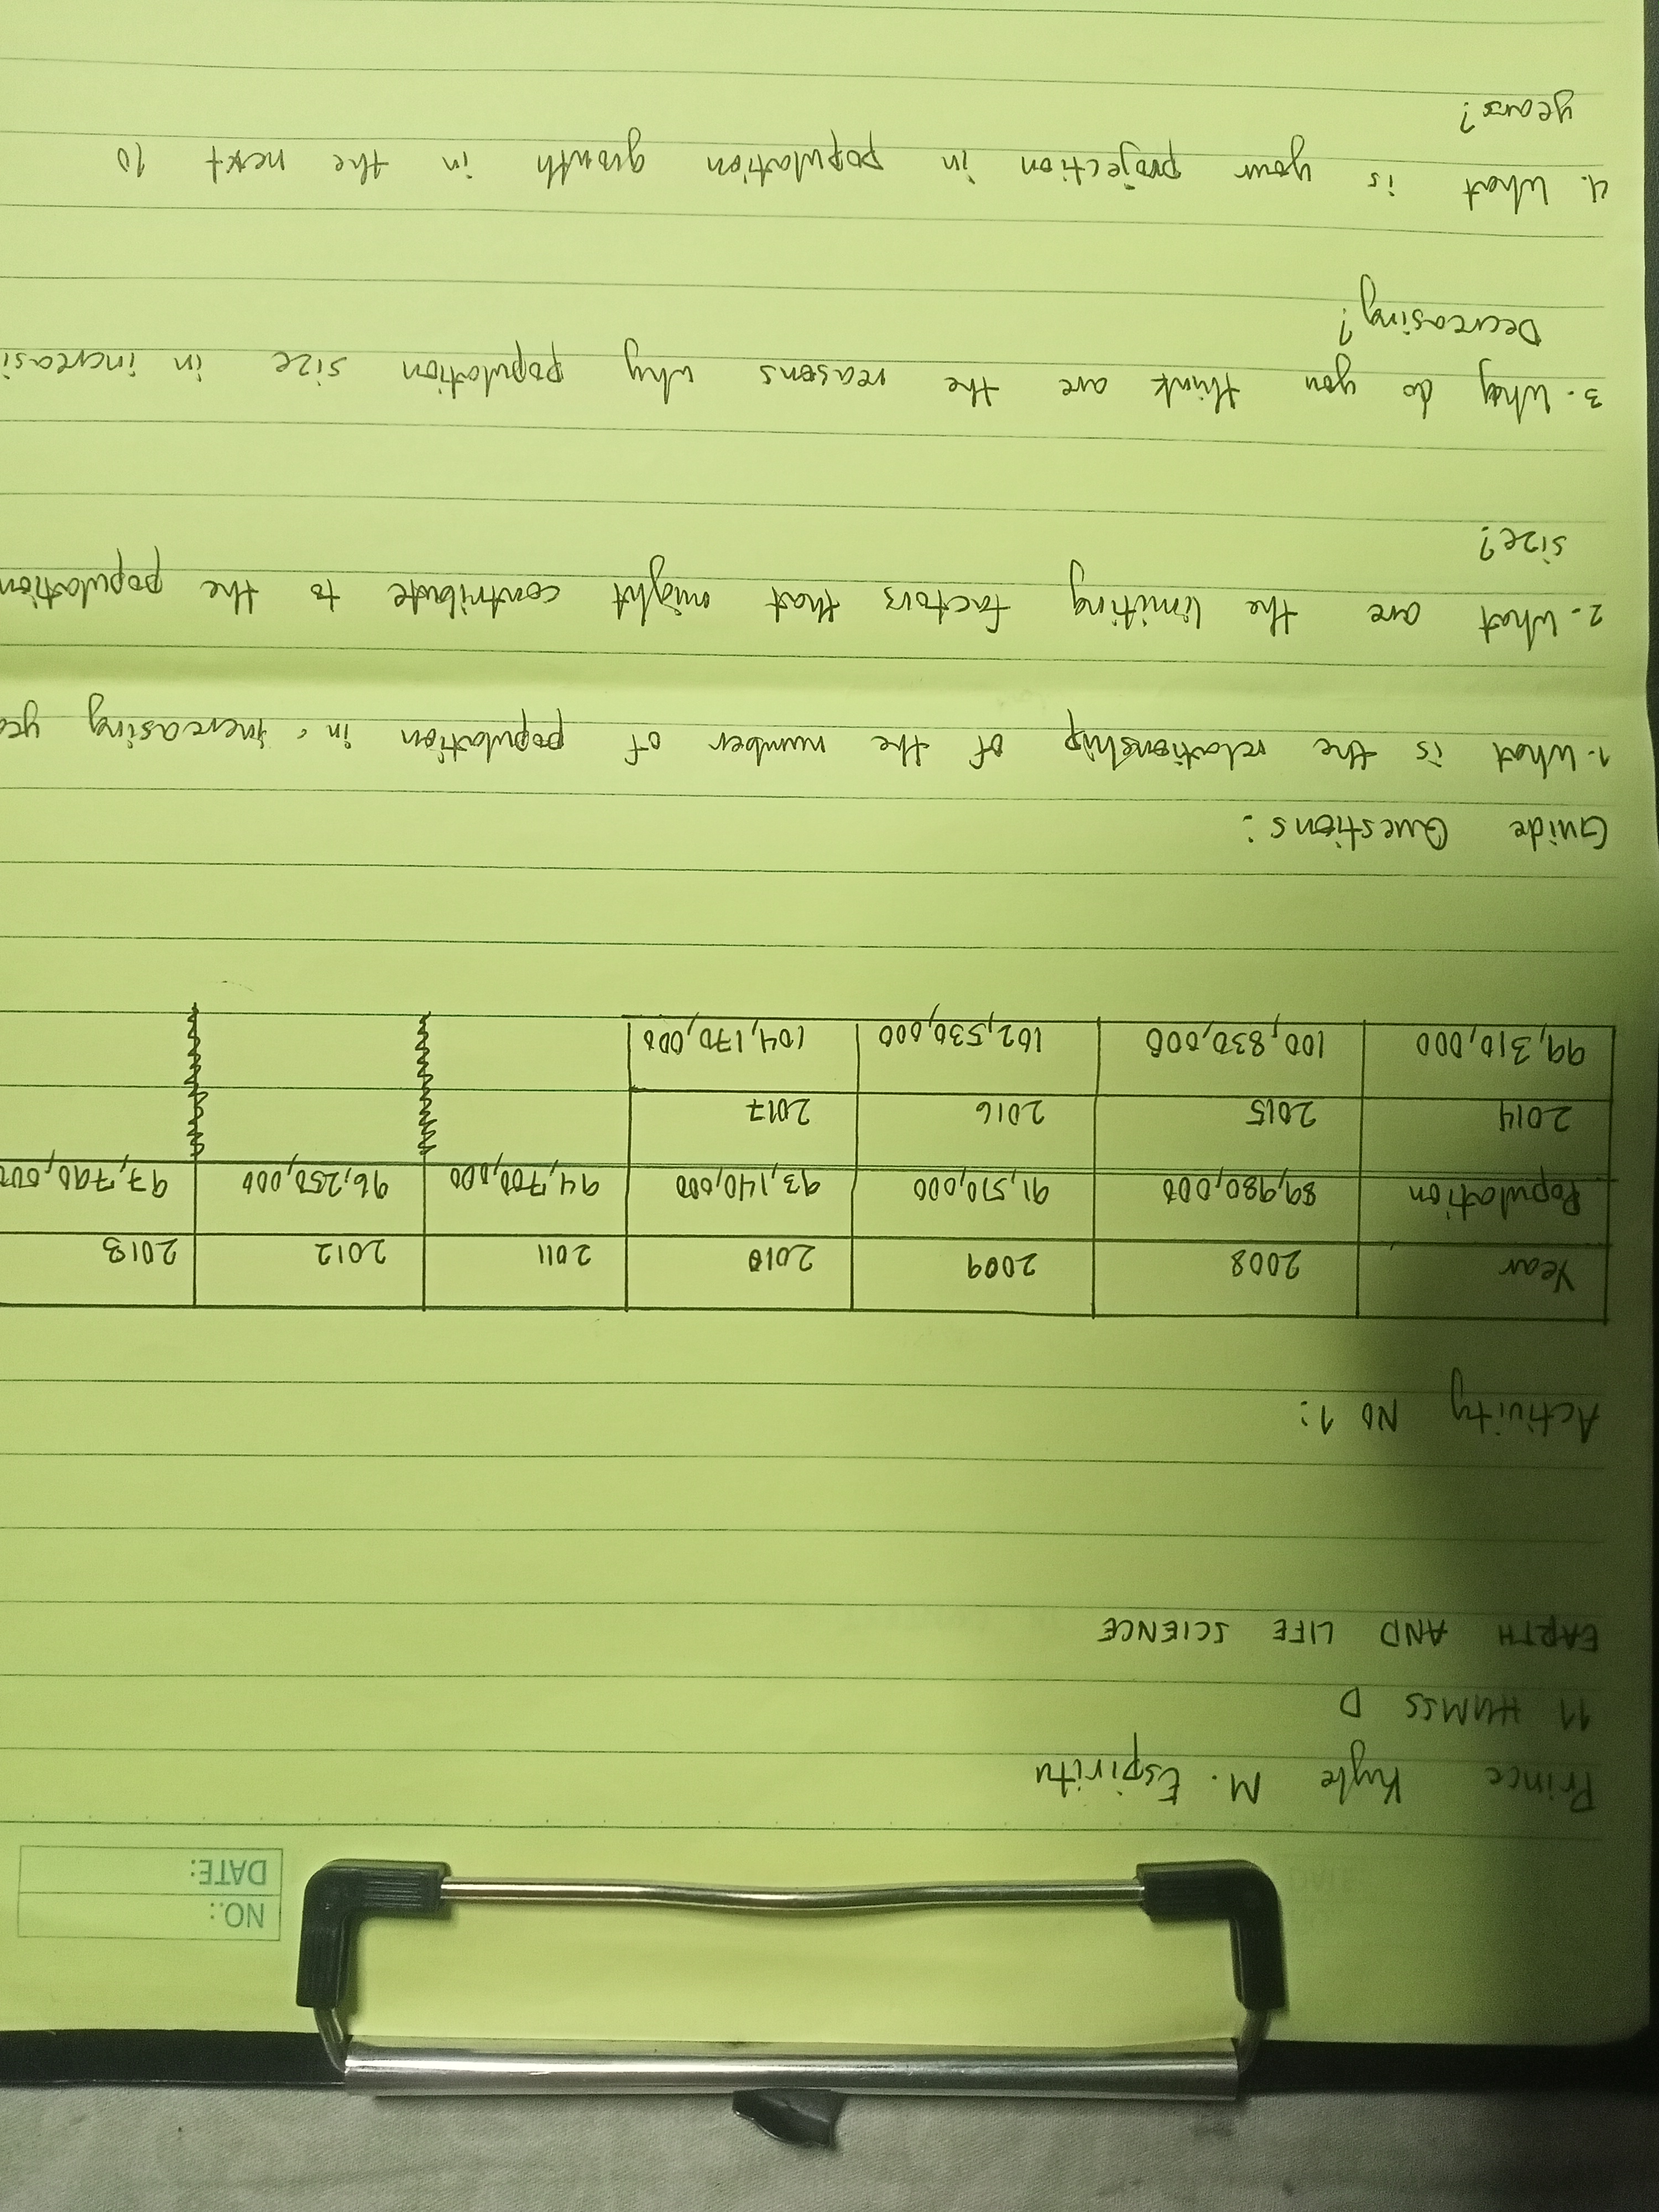 NO.:
DATE:
Prince Kyle M. Espiritu
11 HUMSS D
EARTH AND LIFE SCIENCE
Activity No 1:
Year 2008 2009 2010 2011 2012 2013
Population 89,980,000 91,510,000 93,140,000 94,700,000 96,250,000 97,790,000
2014 2015 2016 2017
99,310,000 100,830,000 102,530,000 104,170,000
Guide Questions:
1. What is the relationship of the number of population in increasing
2. What are the limiting factors that might contribute to the population
size?
3. Why do you think are the reasons why population size in increasi
Decreasing?
4. What is your projection in population growth in the next 10
years?